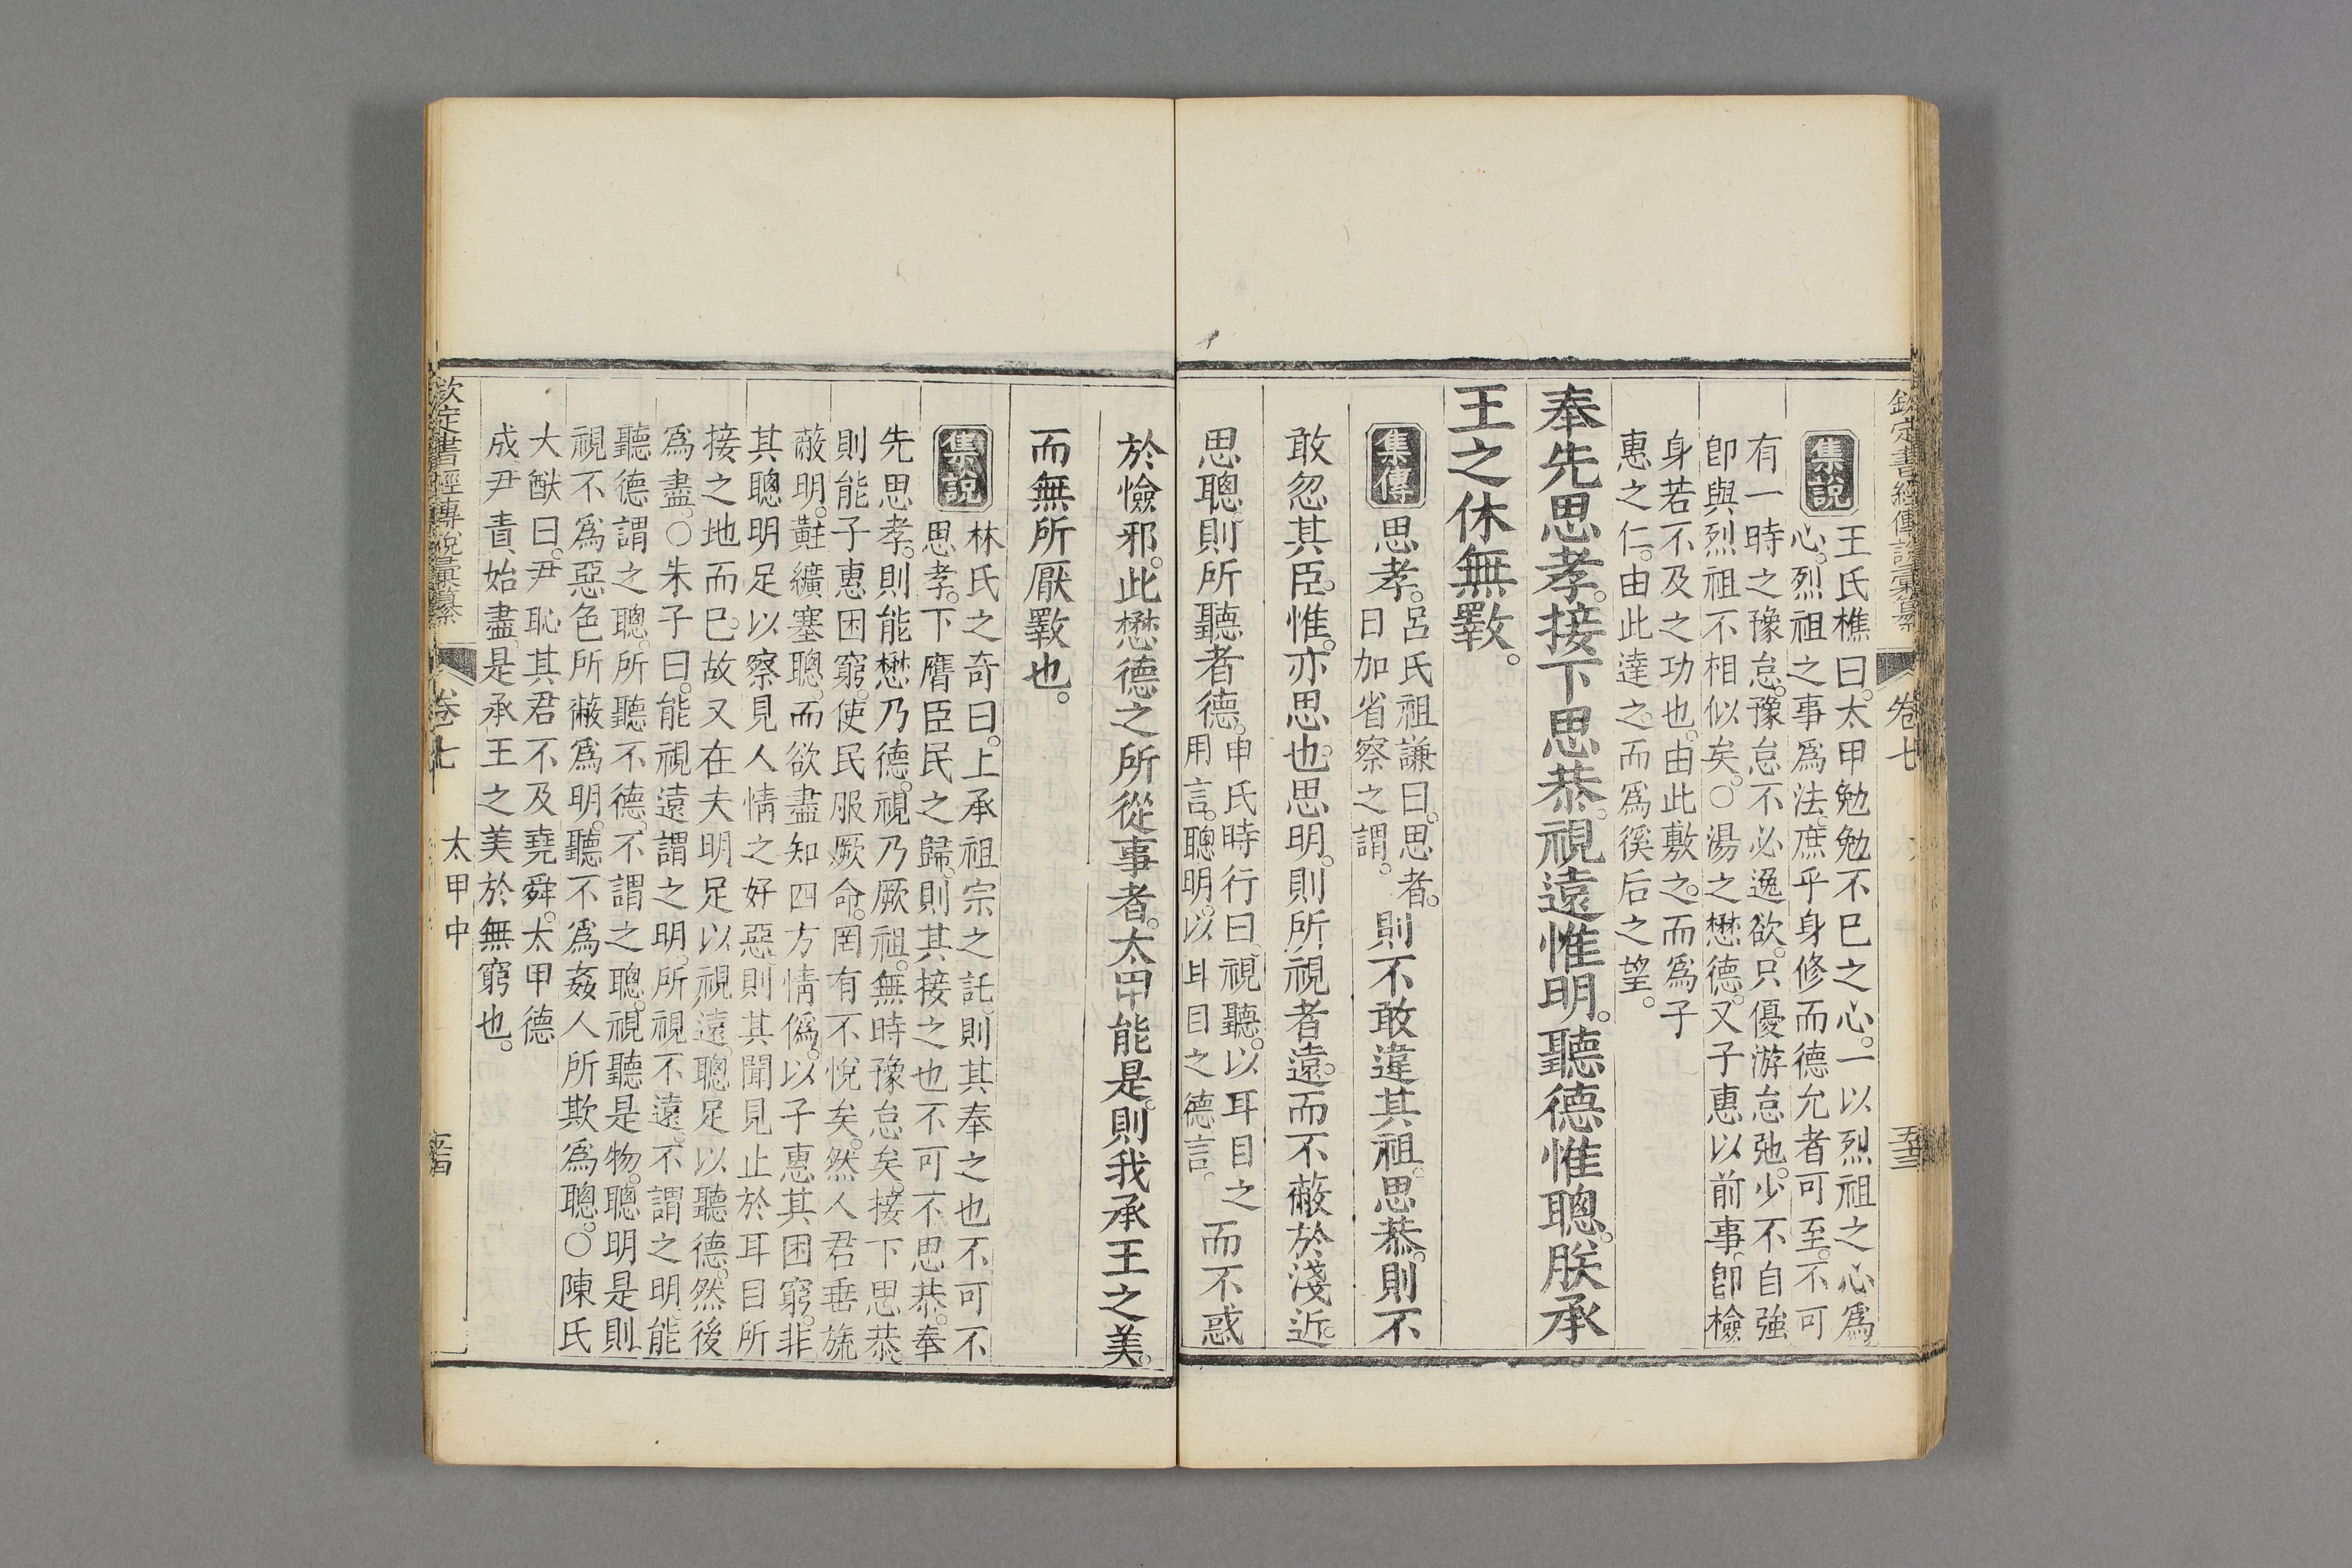 欽定書經傳說彙纂 卷七 五十三
集說
王氏樵曰。太甲勉勉不巳之心。一以烈祖之心爲
心。烈祖之事爲法。庶乎身修而德允者可至。不可
有一時之豫怠。豫怠不必逸欲。只優游怠弛。少不自強
卽與烈祖不相似矣。○湯之懋德。又子惠以前事。卽檢
身若不及之功也。由此敷之。而爲子
惠之仁。由此達之。而爲徯后之望。
奉先思孝。接下思恭。視遠惟明。聽德惟聰。朕承
王之休無斁。
集傳
思孝。呂氏祖謙曰。思者。
日加省察之謂。
則不敢違其祖。思恭。則不
敢忽其臣。惟。亦思也。思明。則所視者遠。而不蔽於淺近。
思聰。則所聽者德。申氏時行曰。視聽。以耳目之
用言。聰明。以耳目之德言。
而不惑
於憸邪。此懋德之所從事者。太甲能是。則我承王之美。
而無所厭斁也。
集說
林氏之奇曰。上承祖宗之託。則其奉之也不可不
思孝。下膺臣民之歸。則其接之也不可不思恭。奉
先思孝。則能懋乃德。視乃厥祖。無時豫怠矣。接下思恭。
則能子惠困窮。使民服厥命。罔有不悅矣。然人君垂旒
蔽明。黈纊塞聰。而欲盡知四方情僞。以子惠其困窮。非
其聰明足以察見人情之好惡。則其聞見止於耳目所
接之地而巳。故又在夫明足以視遠。聰足以聽德。然後
爲盡。○朱子曰。能視遠謂之明。所視不遠。不謂之明。能
聽德謂之聰。所聽不德。不謂之聰。視聽是物。聰明是則
視不爲惡色所蔽爲明。聽不爲姦人所欺爲聰。○陳氏
大猷曰。尹恥其君不及堯舜。太甲德
成。尹責始盡。是承王之美於無窮也。
欽定書經傳說彙纂 卷七 太甲中 五十四